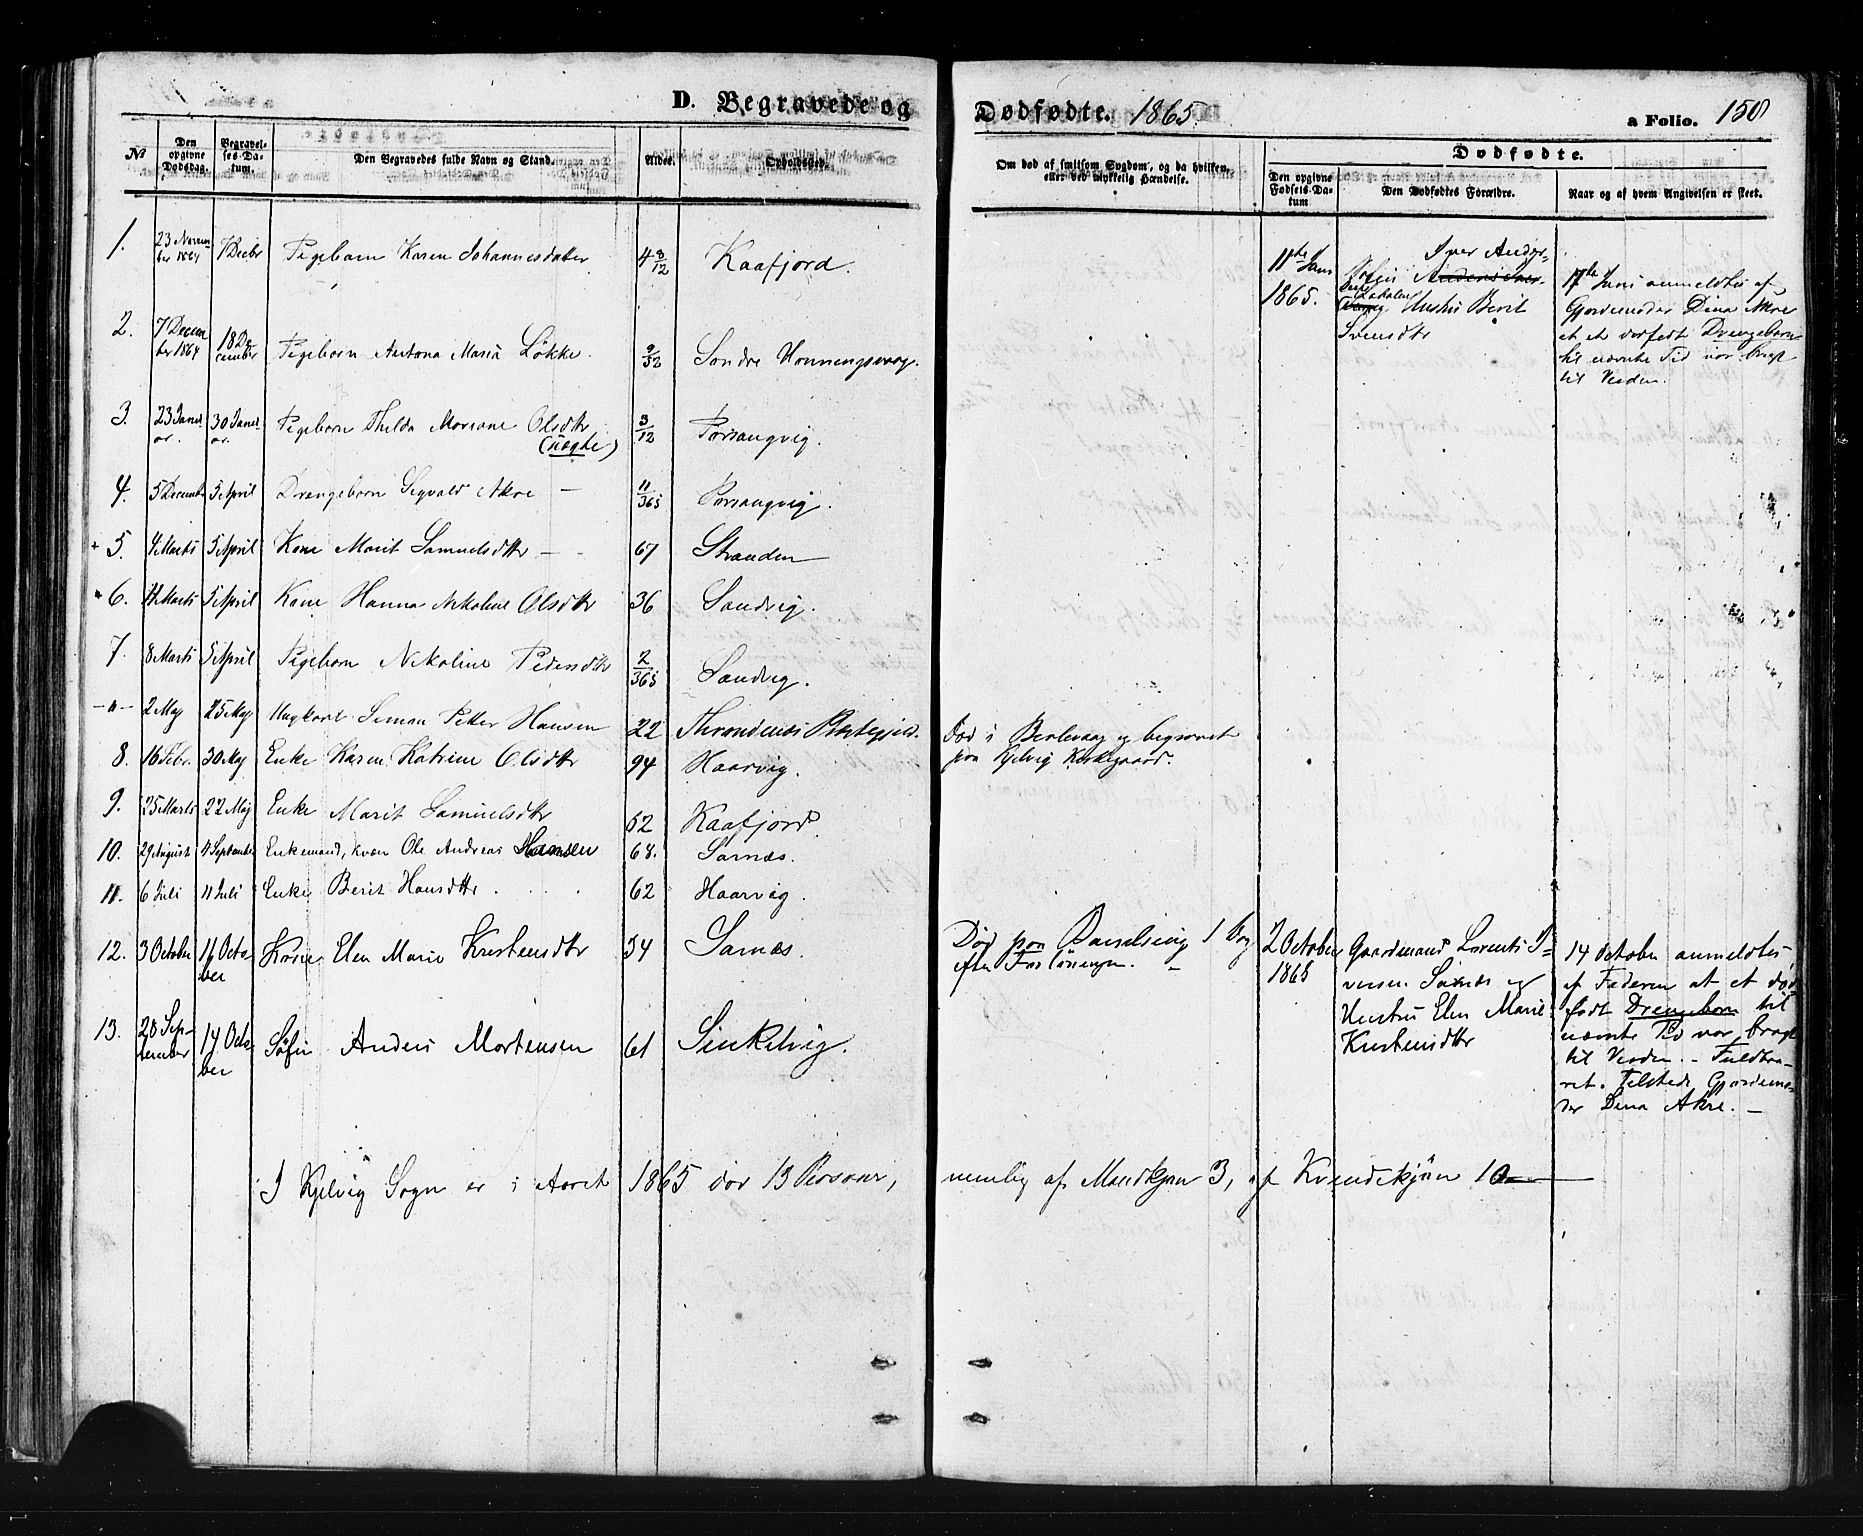 D. Begravede og Dødfødte. 1865.
a Folio. 158
No
Den opgivne Dødsdag.
Begravelses-Datum.
Den Begravedes fulde Navn og Stand.
Alder.
Opholdssted.
Om død af smitsom Sygdom, og da hvilken, eller ved ulykkelig Hændelse.
Dødfødte.
Den opgivne Fødsels-Datum
Den Dødfødtes Forældre.
Naar og af hvem Angivelsen er skeet.
1. 23 November 1864 7 Decbr Pigebarn Karen Johannesdatter 4 8/12 Kaafjord.
2. 7 December 1864 18 December Pigebarn Antona Maria Løkke. 9/52 Søndre Honningsvaag.
3. 23 Januar. 30 Januar. Pigebarn Thilda Mariane Olsdtr (uægte) 3/12 Porsangvig.
4. 5 December 5 April Drengebarn Sigvald Akre — 11/365 Porsangvig.
+ 5. 4 Marts 5 April Kone Marit Samuelsdtr — 67 Stranden
6. 11 Marts 5 April Kone Hanna Nikoline Olsdtr 36 Sandvig.
7. 8 Marts 5 April Pigebarn Nikoline Pedersdtr 2/365 Sandvig.
—"— 2 May 25 May Ungkarl Simon Petter Hansen 22 Throndenæs Præstegjeld. Død i Berlevaag og begravet
paa Kjelvig Kirkegaard.
8. 16 Febr. 30 May Enke Karen Katrine Olsdtr 94 Haarvig.
9. 25 Marts 22 Maj Enke Marit Samuelsdtr 62 Kaafjord.
10. 29 August 4 September Enkemand, kvæn Ole Andreas Hansen 68. Sarnæs.
11. 6 Juli 11 Juli Enke Berit Hansdtr. 62 Haarvig.
12. 3 October 14 October Kone Elen Marie Kristensdtr 34 Sarnæs. Død paa Barselseng 1 Dag
efter Forløsningen. —
13. 28 September 14 October Søfin Anders Mortensen 61 Sinkelvig.
11te Juni
1865.
Iver Ander-
Søfin
Hustru Berit
Svensdtr
17te Juni anmeldtes af
Gjordemoder Dina Akre
at et dødfødt Drengebarn
til nævnte Tid var bragt
til Verden.
2 October
1865
Gaardmand Lorents I-
versen Sarnæs og
Hustru Elen Marie
Kristensdtr
14 October anmeldtes
af Faderen at et død
født Drengebarn til
nævnte Tid var bragt
til Verden. – Fuldbaa-
ret. Tilstede Gjordemo-
der Dina Akre. —
I Kjelvig Sogn er i Aaret 1865 død 13 Personer, nemlig af Mandkjøn 3, af Kvindekjøn 10